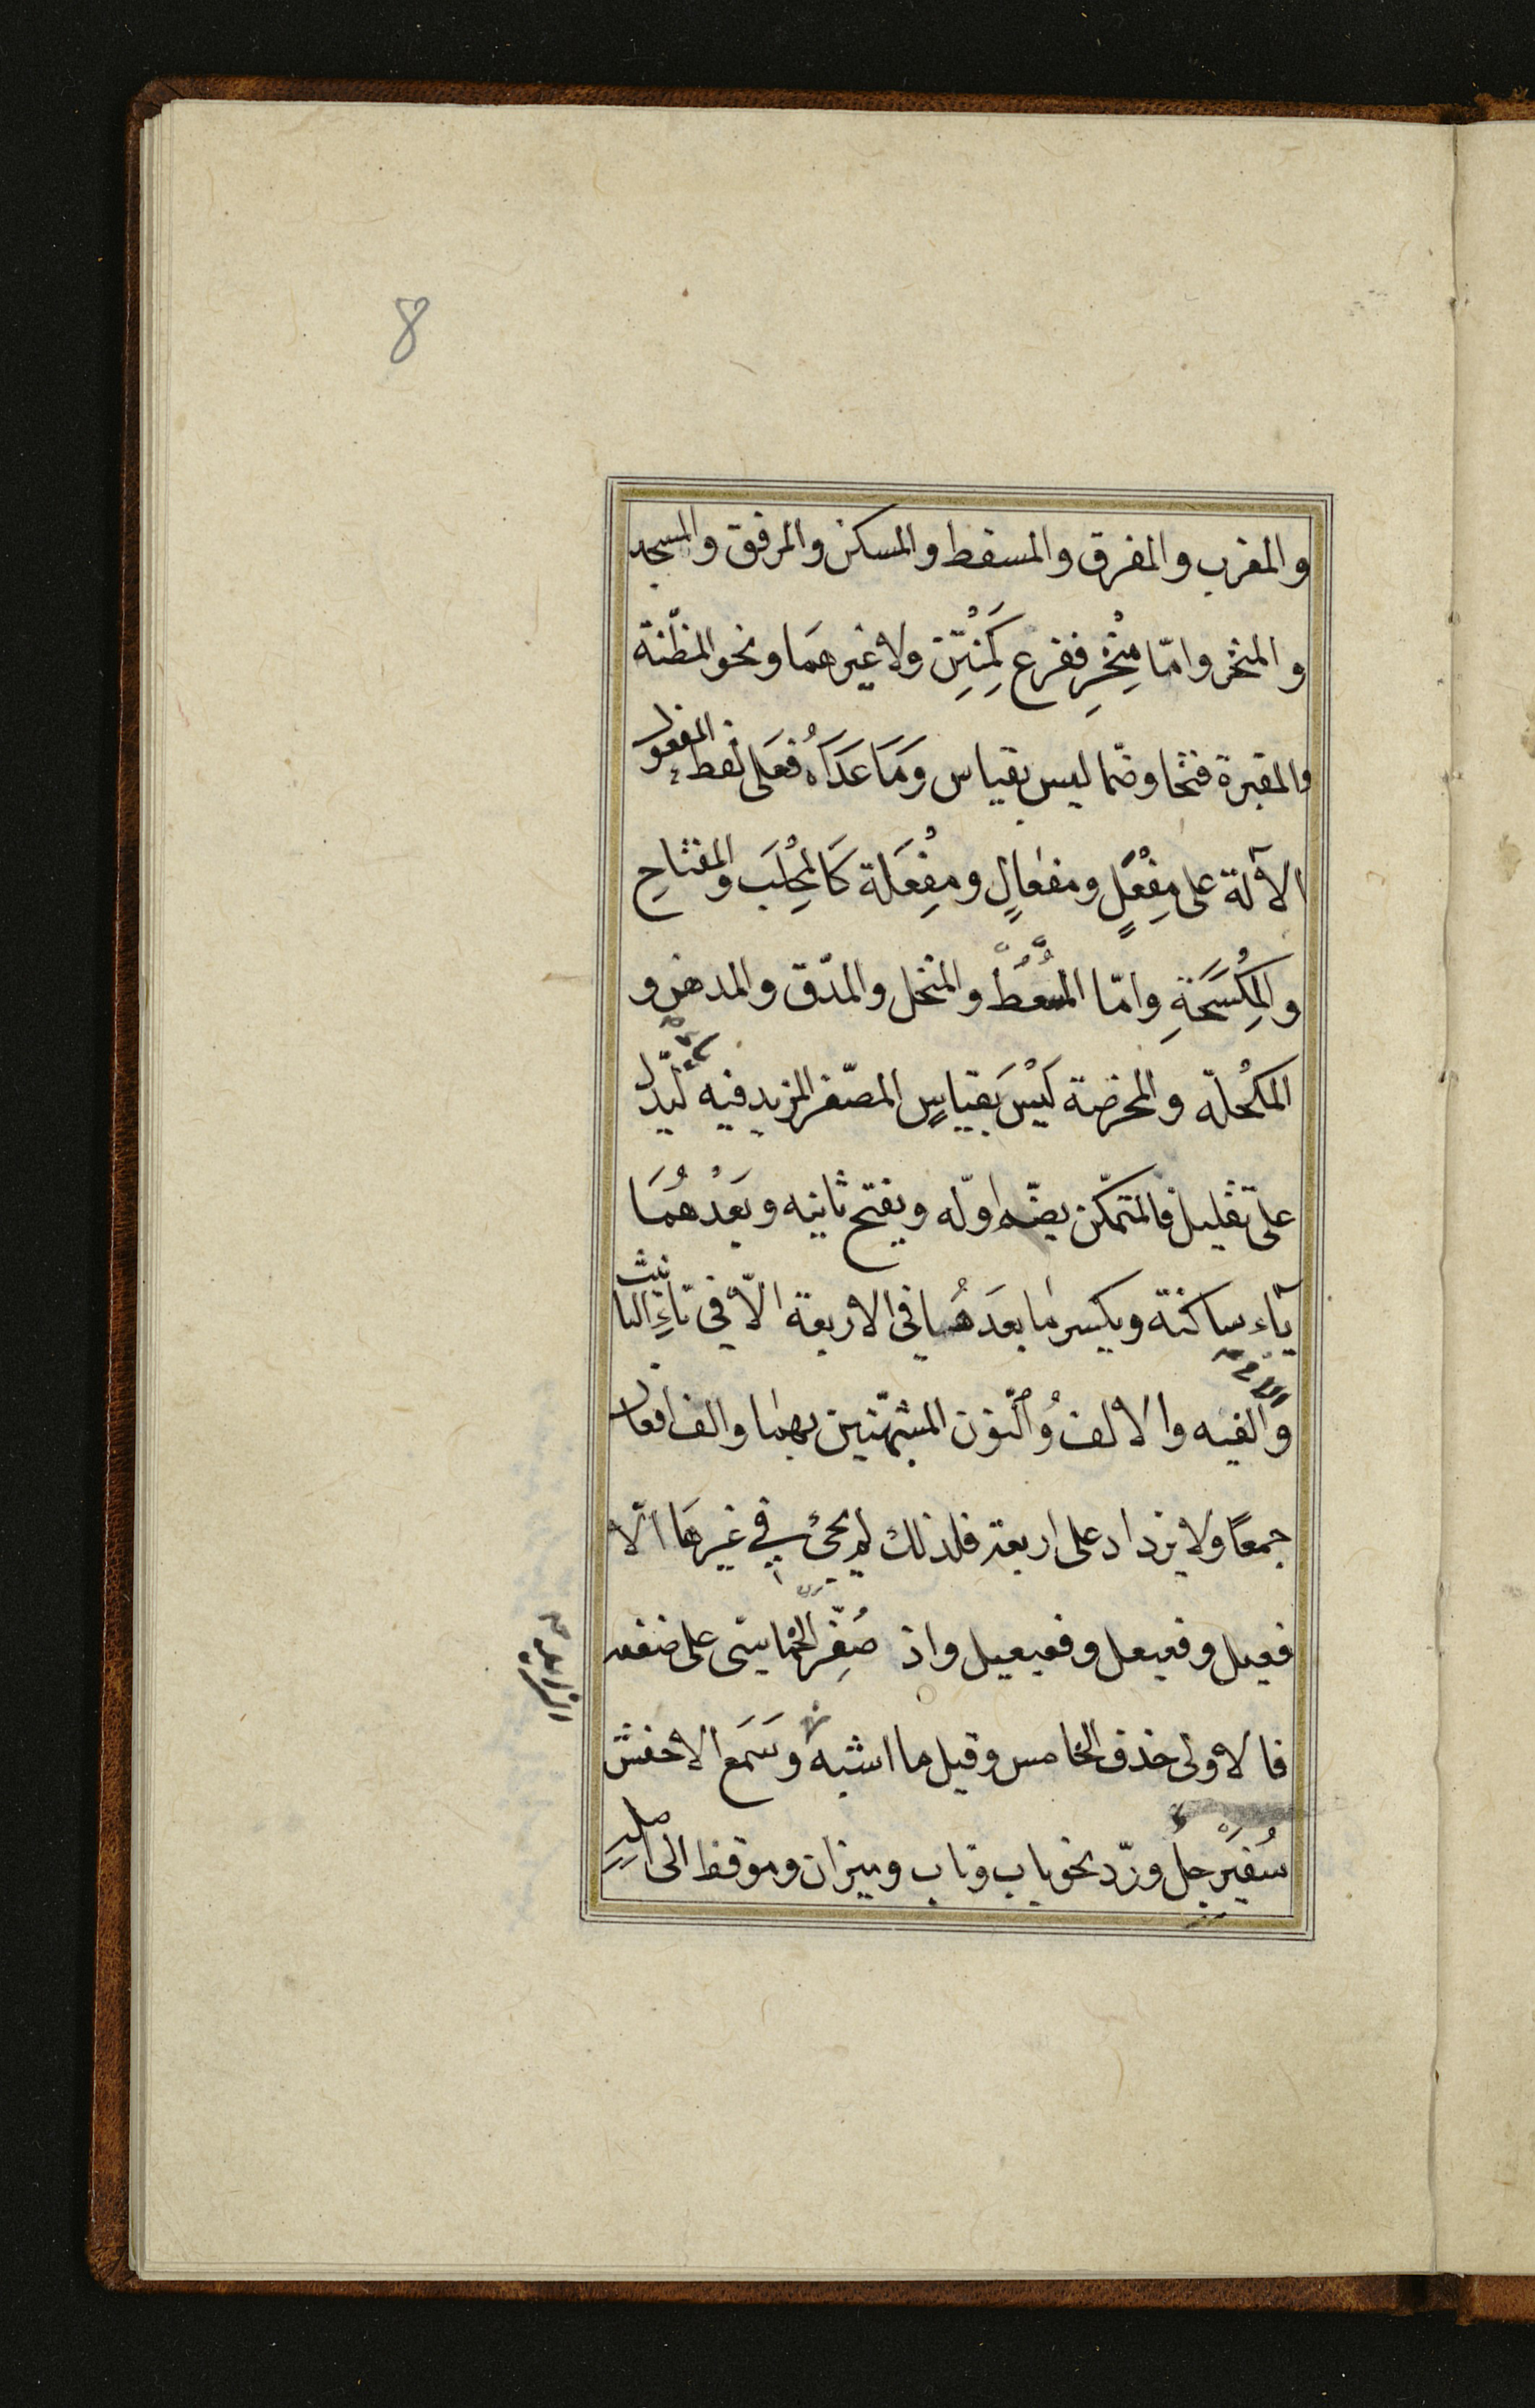 8
والمغرب والمفرق والمسقط والمسكن والمرفق والمسجد
والمنخر وامّا مِنْخِر ففرع كَمِنْتِن ولا غيرهمَا ونحو المظنّة
والمقبرة فتحا وضمّا ليس بقياس وَمَا عَدَاهُ فعَلى لفظ المفعول
الآلة على مِفْعَلٍ ومفعالٍ ومِفْعَلة كَالمِحْلَب والمفتاحِ
والمِكْسَحَةِ وامّا المُسْعُطُ والمنخل والمدّق والمدهن و
المكحلة والمحرضة لَيْسَ بَقياسٍ المصّغر المزيد فيه ليدّل
على تقليل فالمتمكّن يضمّ اوّله ويفتح ثانيه وبَعْدهُمَا
يآء ساكنة ويكسر ما بعدَهُما فى الاربعة الّا فى تاءِ التانيث
والفيه والالف وُالنّون المشبهّتين بهما والف افعال
جمعًا ولا يزداد على اربعة فلذلك لم يجئ في غيرهَا الّا
فعيل وفعيعل وفعيعيل واذ صُغِّر الخماسّى على ضعفه
فالاولى حذف الخامس وقيل ما اشبه وسَمَع الاخفش
سُفَيْرِجلُ ورّد نحو باب وناب وميزان وموقظ الى اصلِهِ